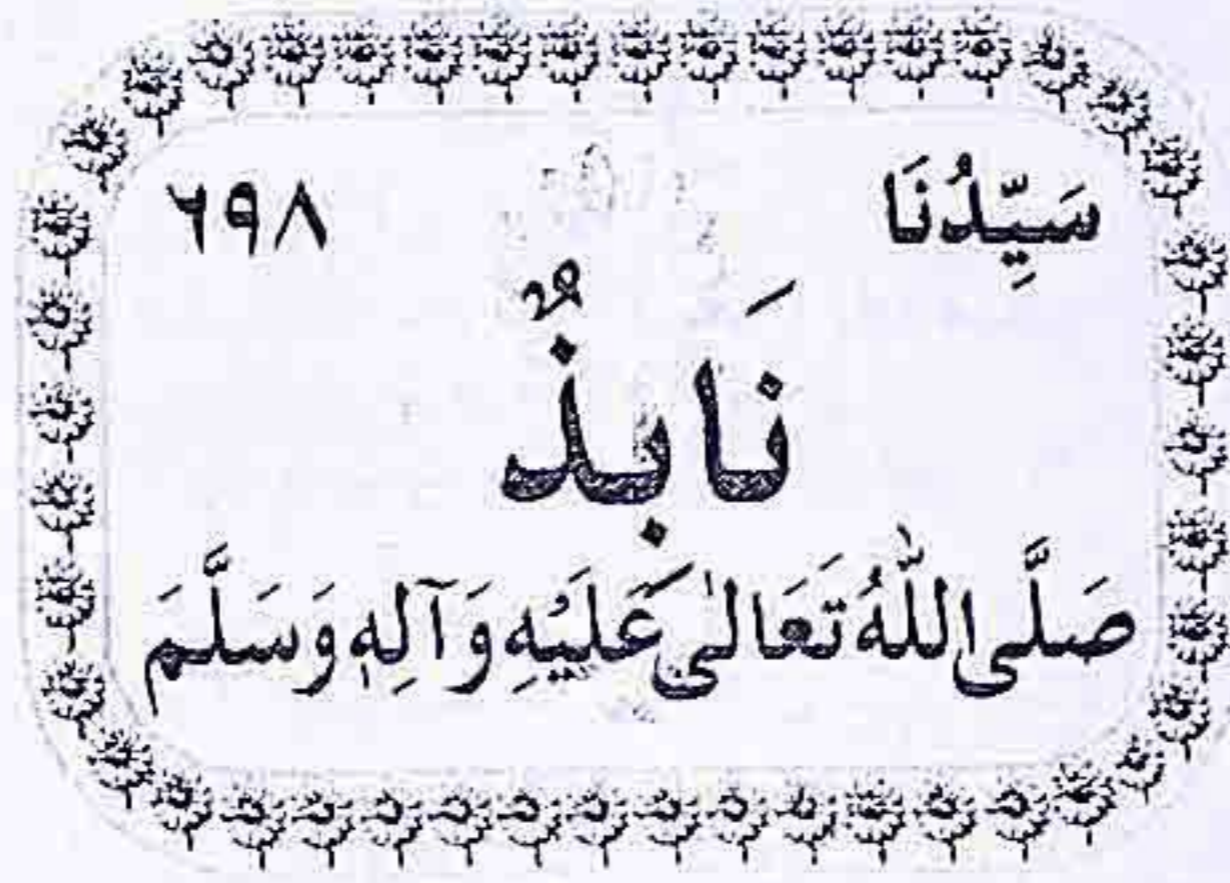 سَيِّدُنَا ٦٩٨
نَابِذٌ
صَلَّى اللّٰهُ تَعَالٰى عَلَيْهِ وَآلِهٖ وَسَلَّمَ